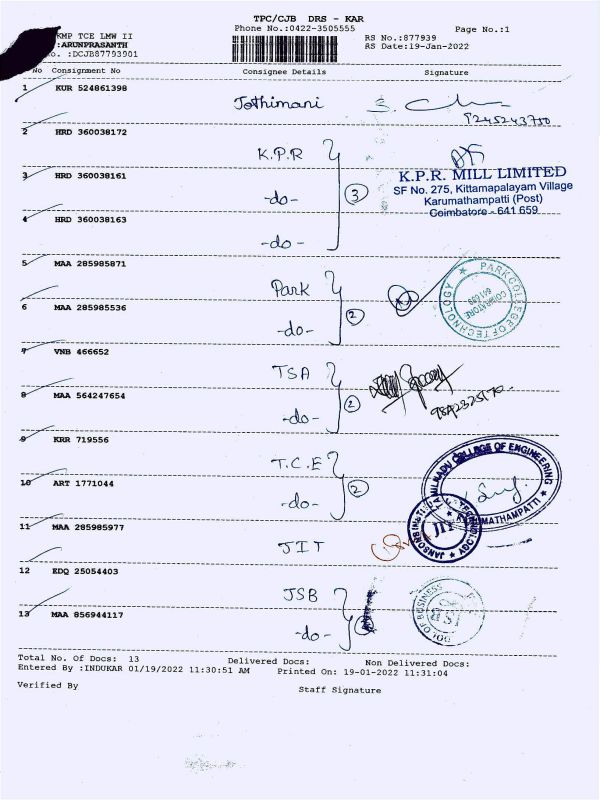 TPC/CJB DRS - KAR
Phone No.:0422-3505555
Page No.:1
KMP TCE LMW II
:ARUNPRASANTH
RS No.:877939
RS Date:19-Jan-2022
No. :DCJB87793901
No Consignment No Consignee Details Signature
1 KUR 524861398
Jothimani
9245243750
2 HRD 360038172
K.P.R
3 HRD 360038161
-do-
3
K.P.R. MILL LIMITED
SF No. 275, Kittamapalayam Village
Karumathampatti (Post)
Coimbatore - 641 659
4 HRD 360038163
-do-
5 MAA 285985871
Park
PARK COLLEGE OF TECHNOLOGY
COIMBATORE
641 659
6 MAA 285985536
-do-
2
7 VNB 466652
TSA
8 MAA 564247654
-do-
2
9 KRR 719556
T.C.E
TAMILNADU COLLEGE OF ENGINEERING
KARUMATHAMPATTI
10 ART 1771044
-do-
2
11 MAA 285985977
JIT
JIT
12 EDQ 25054403
JSB
13 MAA 856944117
-do-
JSB
OF BUSINESS
Total No. Of Docs: 13 Delivered Docs: Non Delivered Docs:
Entered By :INDUKAR 01/19/2022 11:30:51 AM Printed On: 19-01-2022 11:31:04
Verified By Staff Signature